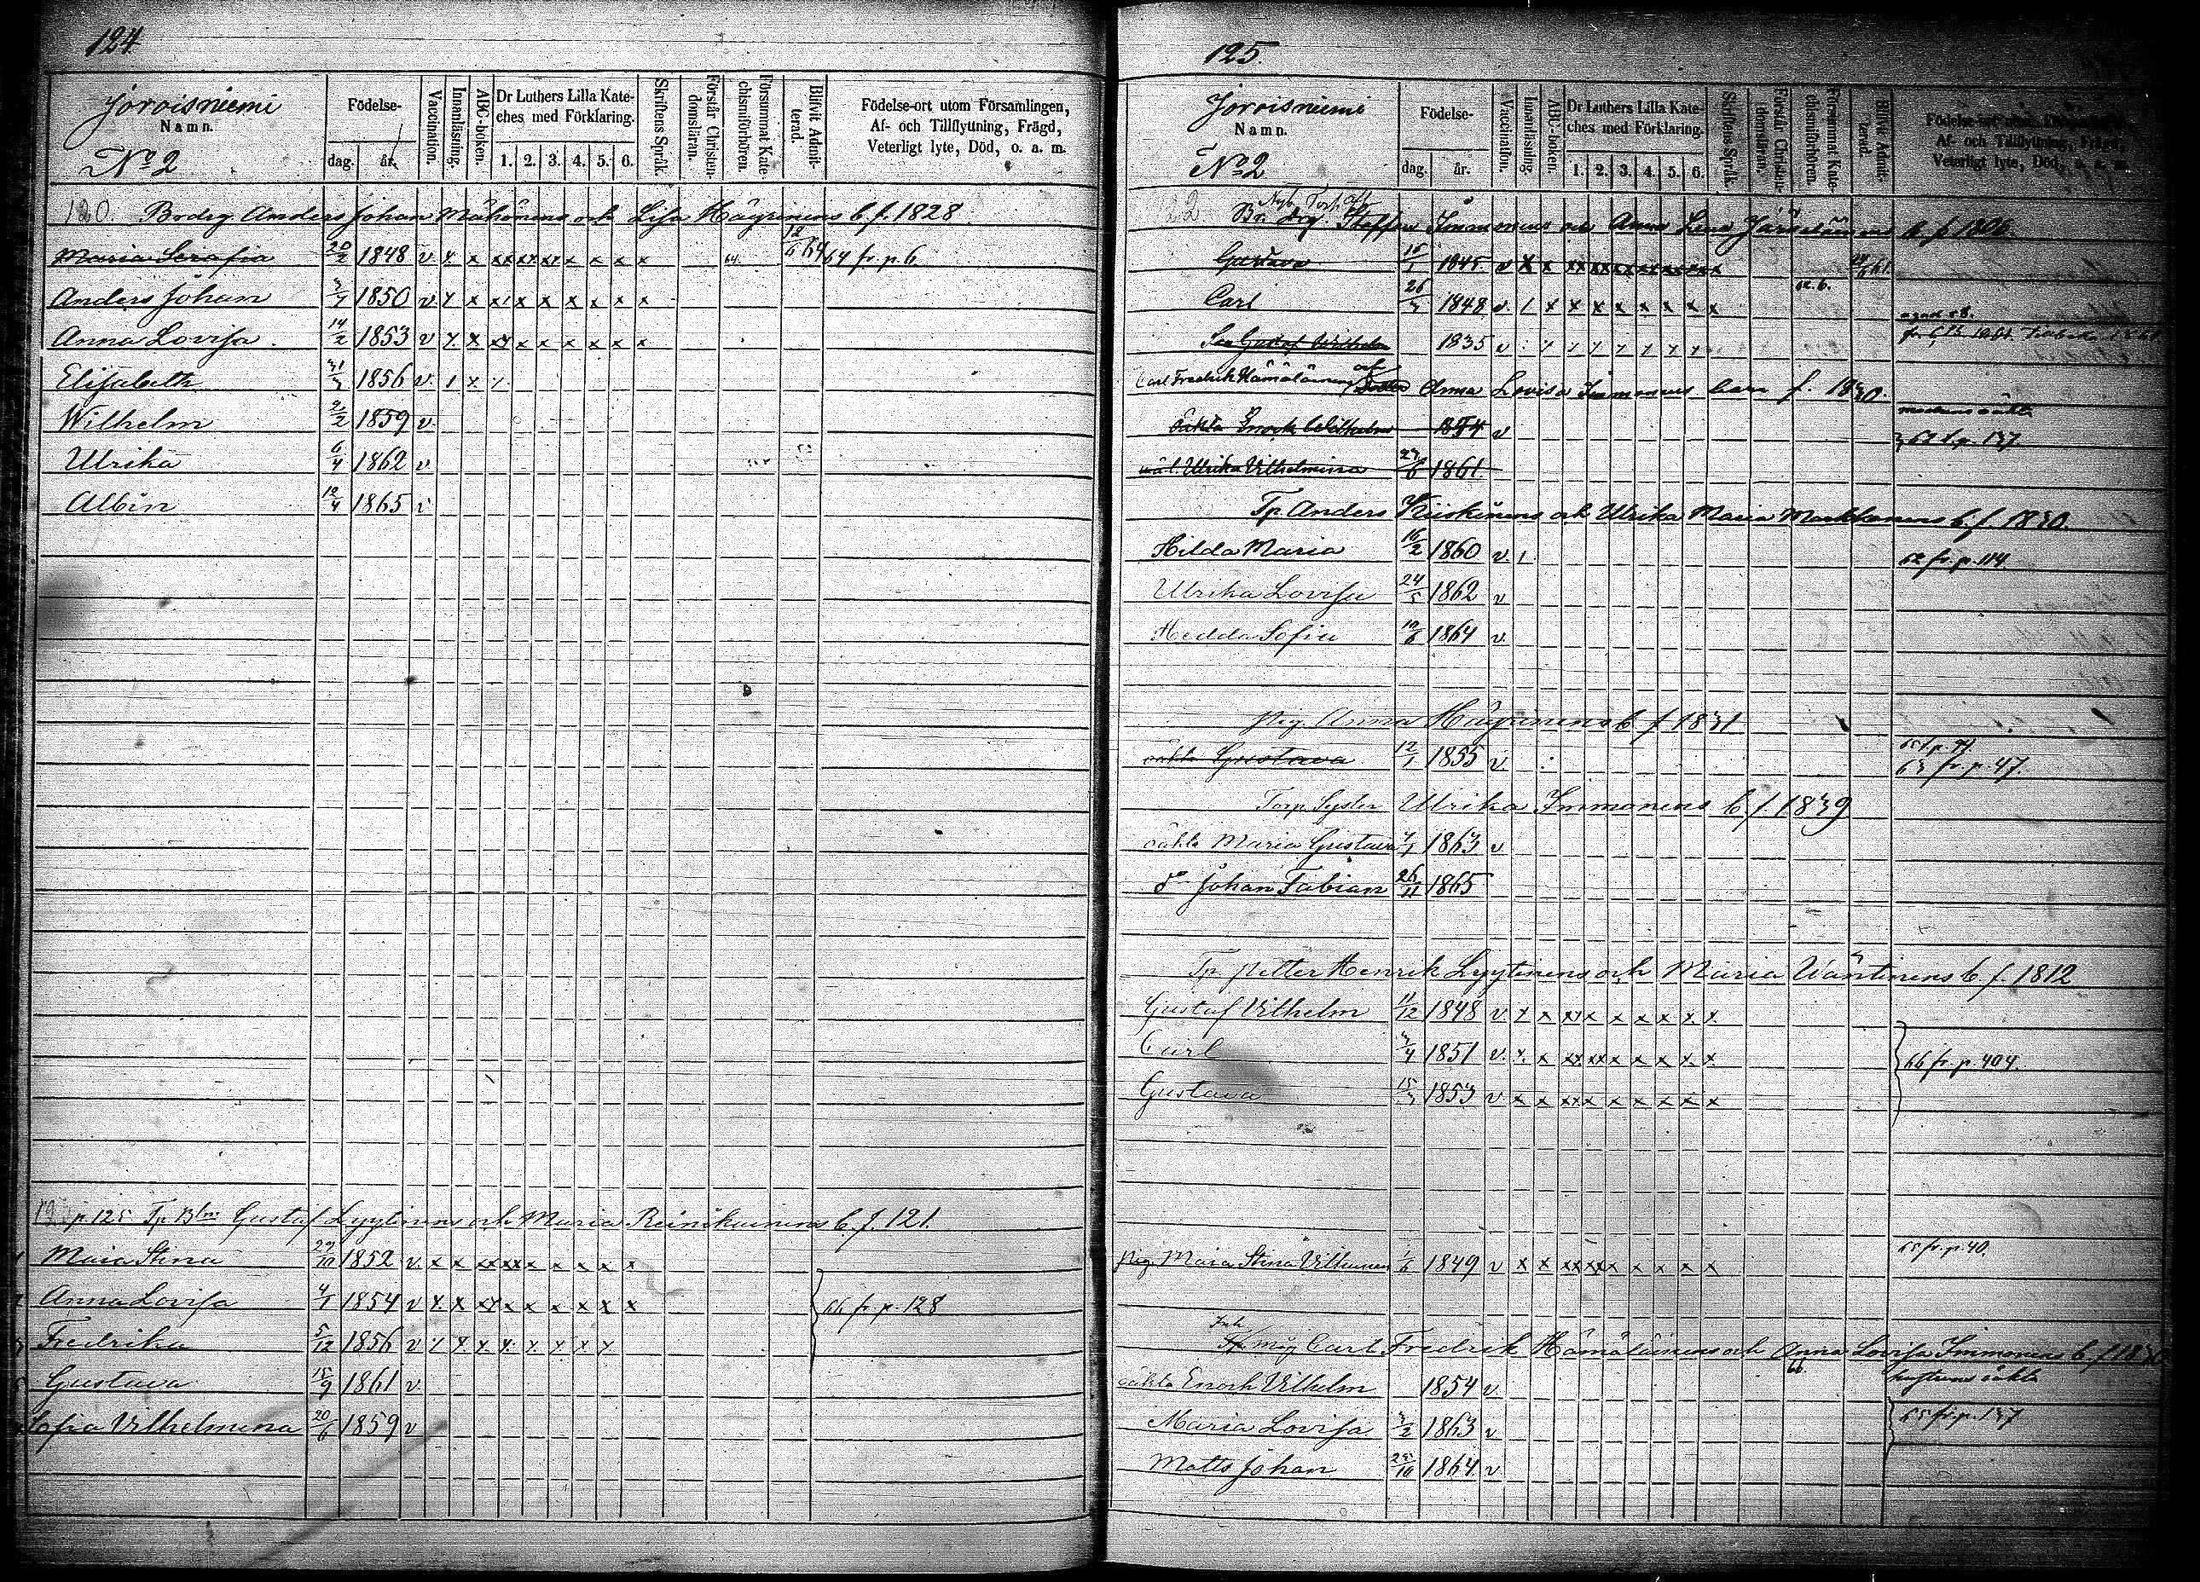 124
Joroisniemi
Namn.
No 2
Födelse-
dag. år.
Vaccination.
Innanläsning.
ABC-boken.
Dr Luthers Lilla Kate-
ches med Förklaring.
1. 2. 3. 4. 5. 6.
Skriftens Språk.
Förstår Christen-
domsläran.
Försummat Kate-
chismiförhören.
Blifvit Admit-
terad.
Födelse-ort utom Församlingen,
Af- och Tillflyttning, Frägd,
Veterligt lyte, Död, o. a. m.
120. Brdrg Anders Johan Mähönens och Lisa Häyrinens b. f. 1828
Maria Serafia 20/2 1848 v x x xx xx xx x x x x 64 12/6 64 64 fr. p. 6.
Anders Johan 3/7 1850 v x x x x x x x x x
Anna Lovisa 14/2 1853 v x x xx x x x x x x
Elisabeth 31/3 1856 v. 1 x x
Wilhelm 2/2 1859 v
Ulrika 6/4 1862 v
Albin 12/4 1865 v
p. 125 Tp Blr Gustaf Lyytinens och Maria Reinikainens b. f. 121.
Maia Stina 29/10 1852 v. x x xx xx x x x x x
Anna Lovisa 4/1 1854 v x x xx x x x x x x
66 fr. p. 128
Fredrika 5/12 1856 v x x x x x x x x
Gustava 15/9 1861 v
Sofia Vilhelmina 20/6 1859 v
125.
Joroisniemi
Namn.
No 2
Födelse-
dag. år.
Vaccination.
Innanläsning.
ABC-boken.
Dr Luthers Lilla Kate-
ches med Förklaring.
1. 2. 3. 4. 5. 6.
Skriftens Språk.
Förstår Christen-
domsläran.
Försummat Kate-
chismiförhören.
Blifvit Admit-
terad.
Födelse-ort utom Församlingen,
Af- och Tillflyttning, Frägd,
Veterligt lyte, Död, o. a. m.
Nyb. Torp.
Br drg. Steffan Immonens och Anna Lena b. f. 1806
Gustava 15/1 1845 v x x xx xx xx xx xx xx x 61.
Carl 26/3 1848 v. 1 x x x x x x x x
Son Gustaf Wilhelm 1835 v x x x x x x
Carl Fredrik Hämäläinens och Anna Lovisa Immonens barn f. 1830.
oäkta Enoch Wilhelm 1854 v
Ulrika Vilhelmina 1861.
Tp. Anders Kiiskinens och Ulrika Maria Markkanens b. f. 1830.
Hilda Maria 16/2 1860 v. 1 62 fr. p. 114.
Ulrika Lovisa 24/5 1862 v
Hedda Sofia 19/6 1864 v.
Pig. Anna Häyrinens b f 1831
oäkta Gustava 12/1 1855 v. 63 fr. p. 47.
Torp. Syster Ulrika Immonens b. f. 1839
oäkta Maria Gustava 1863 v
do Johan Fabian 26/11 1865
Tp. Petter Henrik Lyytinens och Maria Väntinens b f. 1812
Gustaf Vilhelm 11/12 1848 v x x xx x x x x x x
Carl 3/4 1851 v. x. x xx xx x x x x x
66 fr. p. 404.
Gustava 15/3 1853 v x x xx x x x x x x
Pig. Maia Stina Vilhunen 1/6 1849 v x x xx xx x x x x x 65 fr. p. 40.
Inh
måg Carl Fredrik Hämäläinens och Anna Lovisa Immonens b. f. 1830
oäkta Enoch Vilhelm 1854 v hustruns oäkta
Maria Lovisa 3/2 1863 v
65 fr. p. 137
Matts Johan 25/10 1864 v